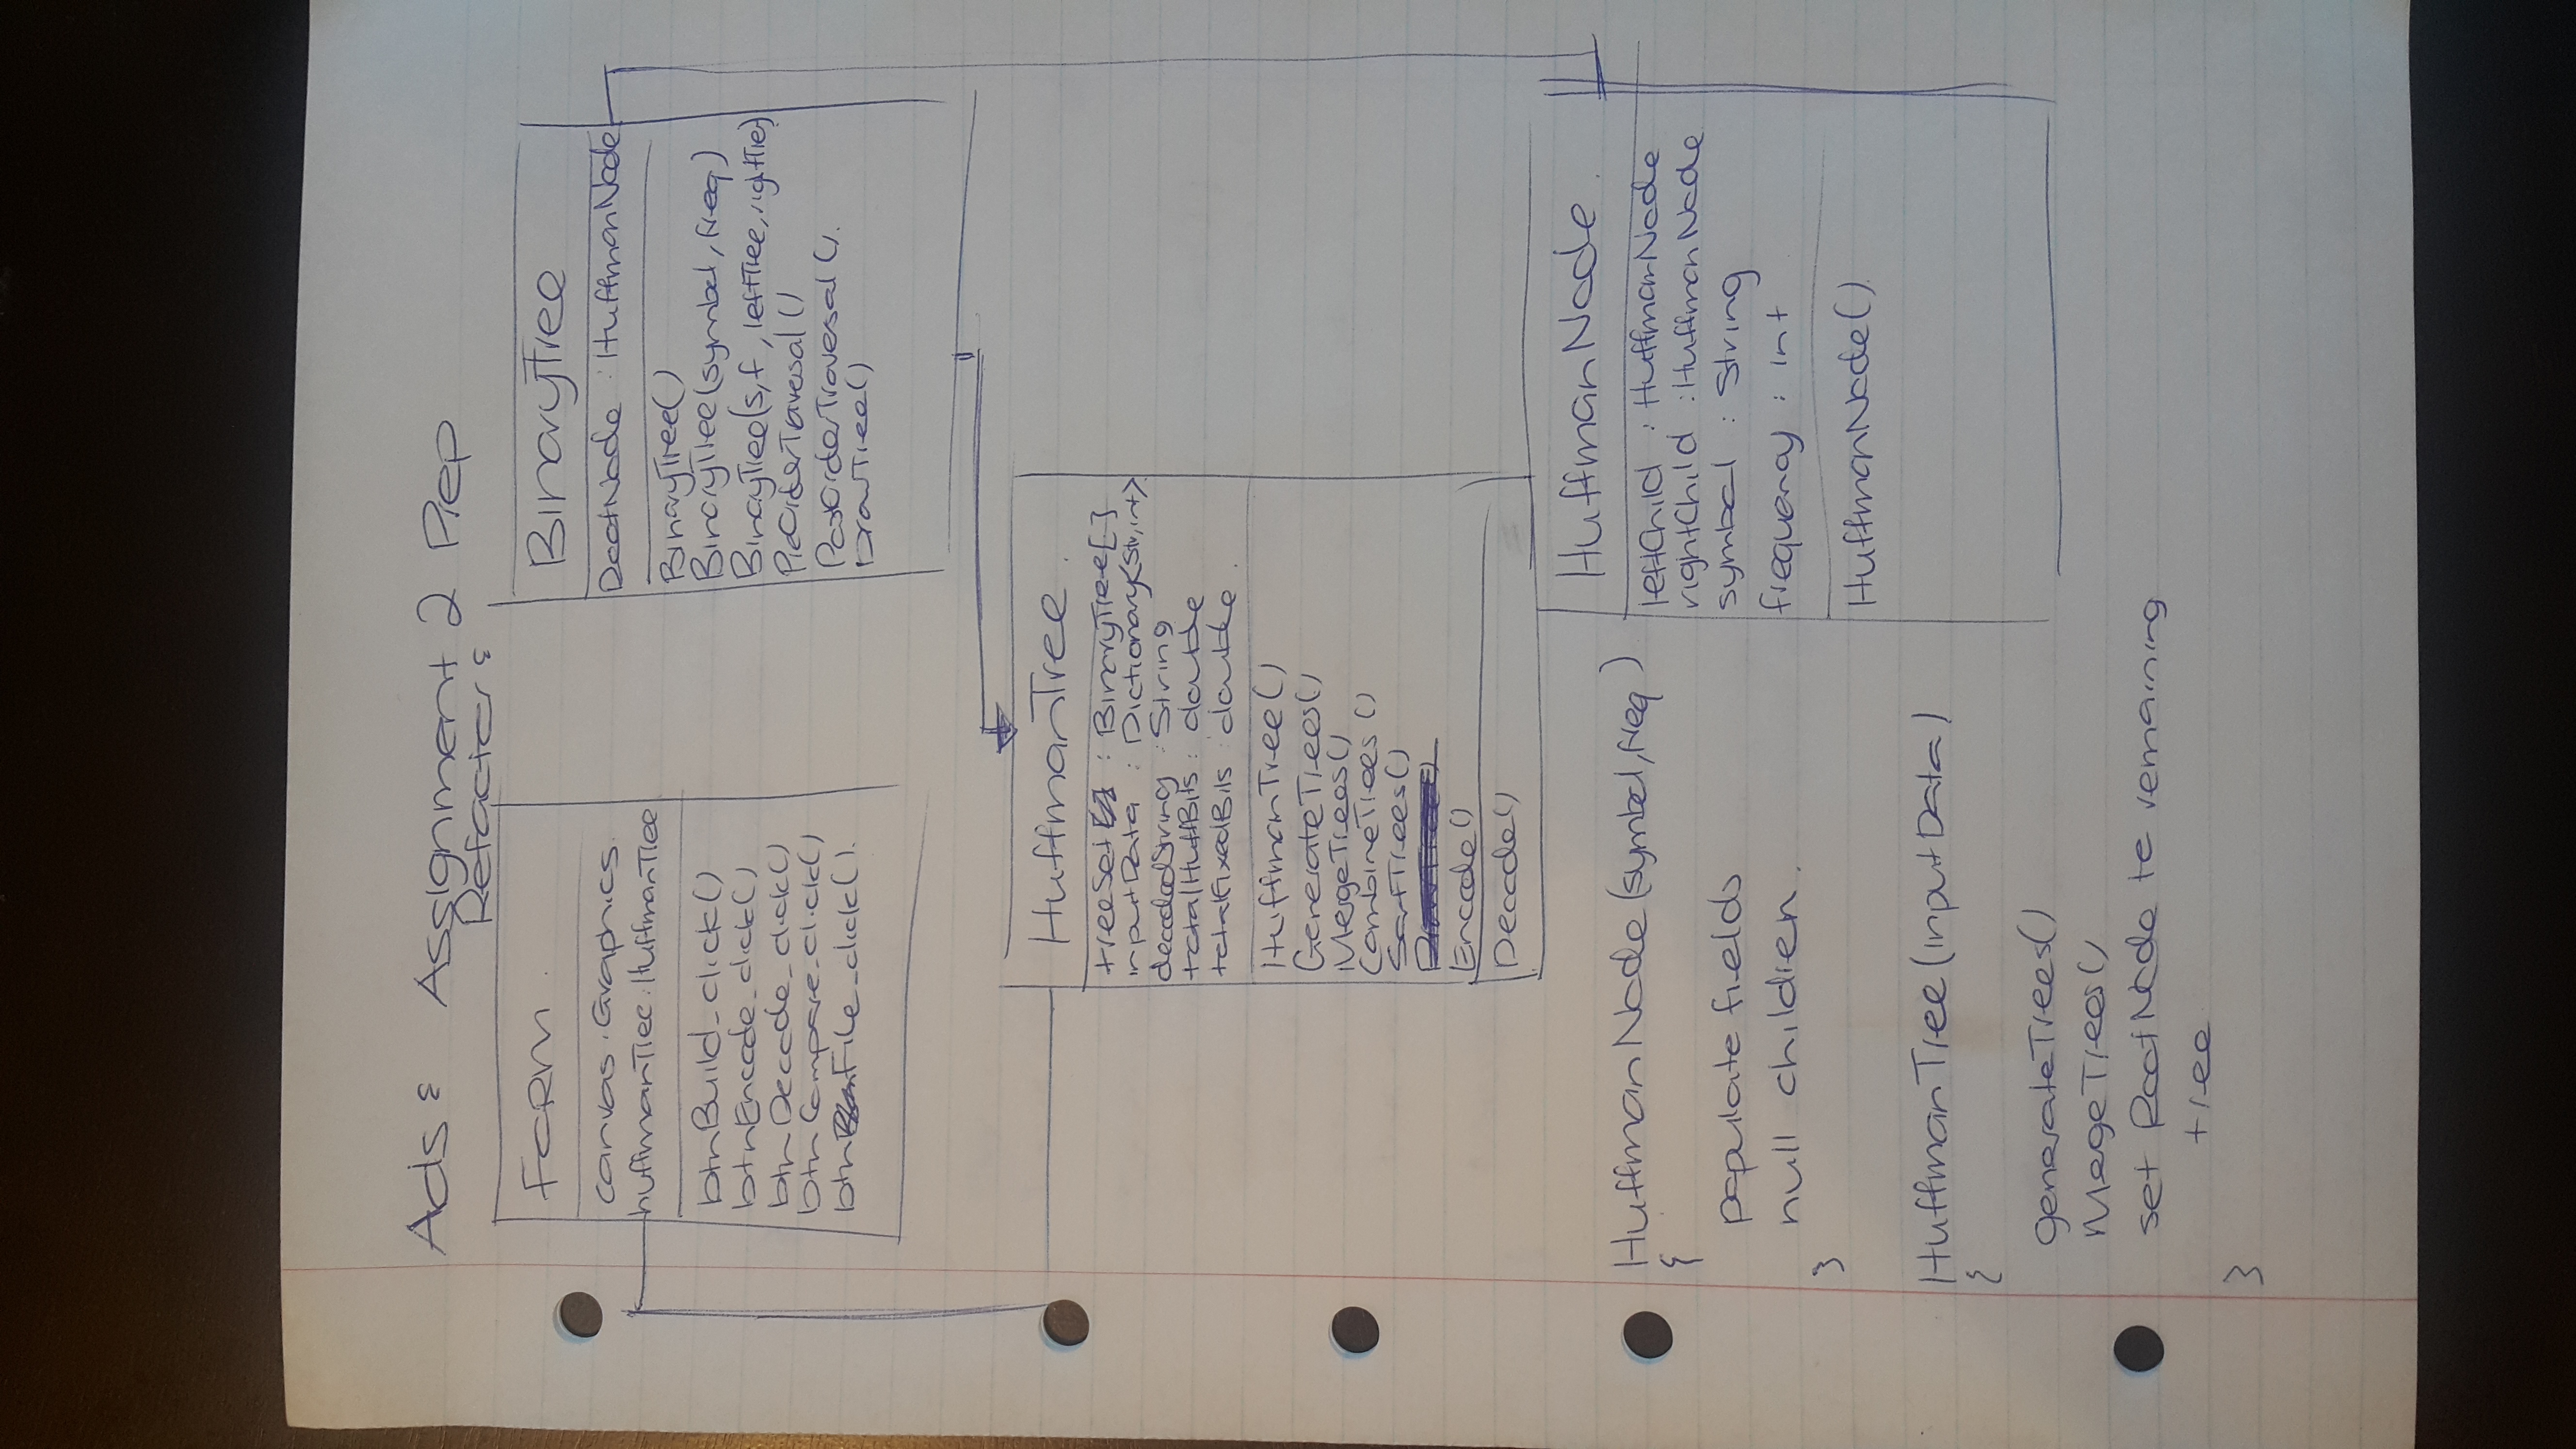 Ads: Assignment 2 Prep
Refactor:
FORM
canvas: Graphics
huffmanTree: HuffmanTree
btnBuild_click()
btnEncode_click()
btnDecode_click()
btnCompare_click()
btnFile_click()
BinaryTree
RootNode : HuffmanNode
BinaryTree()
BinaryTree(symbol, freq)
BinaryTree(s,f, leftTree, rightTree)
PreOrderTraversal()
PostOrderTraversal()
DrawTree()
HuffmanTree
treeSet : BinaryTree[]
inputData : Dictionary<str,int>
decodedString : String
totalHuffBits : double
totalFixedBits double
HuffmanTree()
GenerateTrees()
MergeTrees()
CombineTrees()
SortTrees()
DrawTree()
Encode()
Decode()
HuffmanNode
leftChild : HuffmanNode
rightChild : HuffmanNode
symbol : String
frequency : int
HuffmanNode()
HuffmanNode(symbol, freq)
{
populate fields
null children.
}
HuffmanTree(inputData)
{
generateTrees()
MergeTrees()
set RootNode to remaining
tree
}